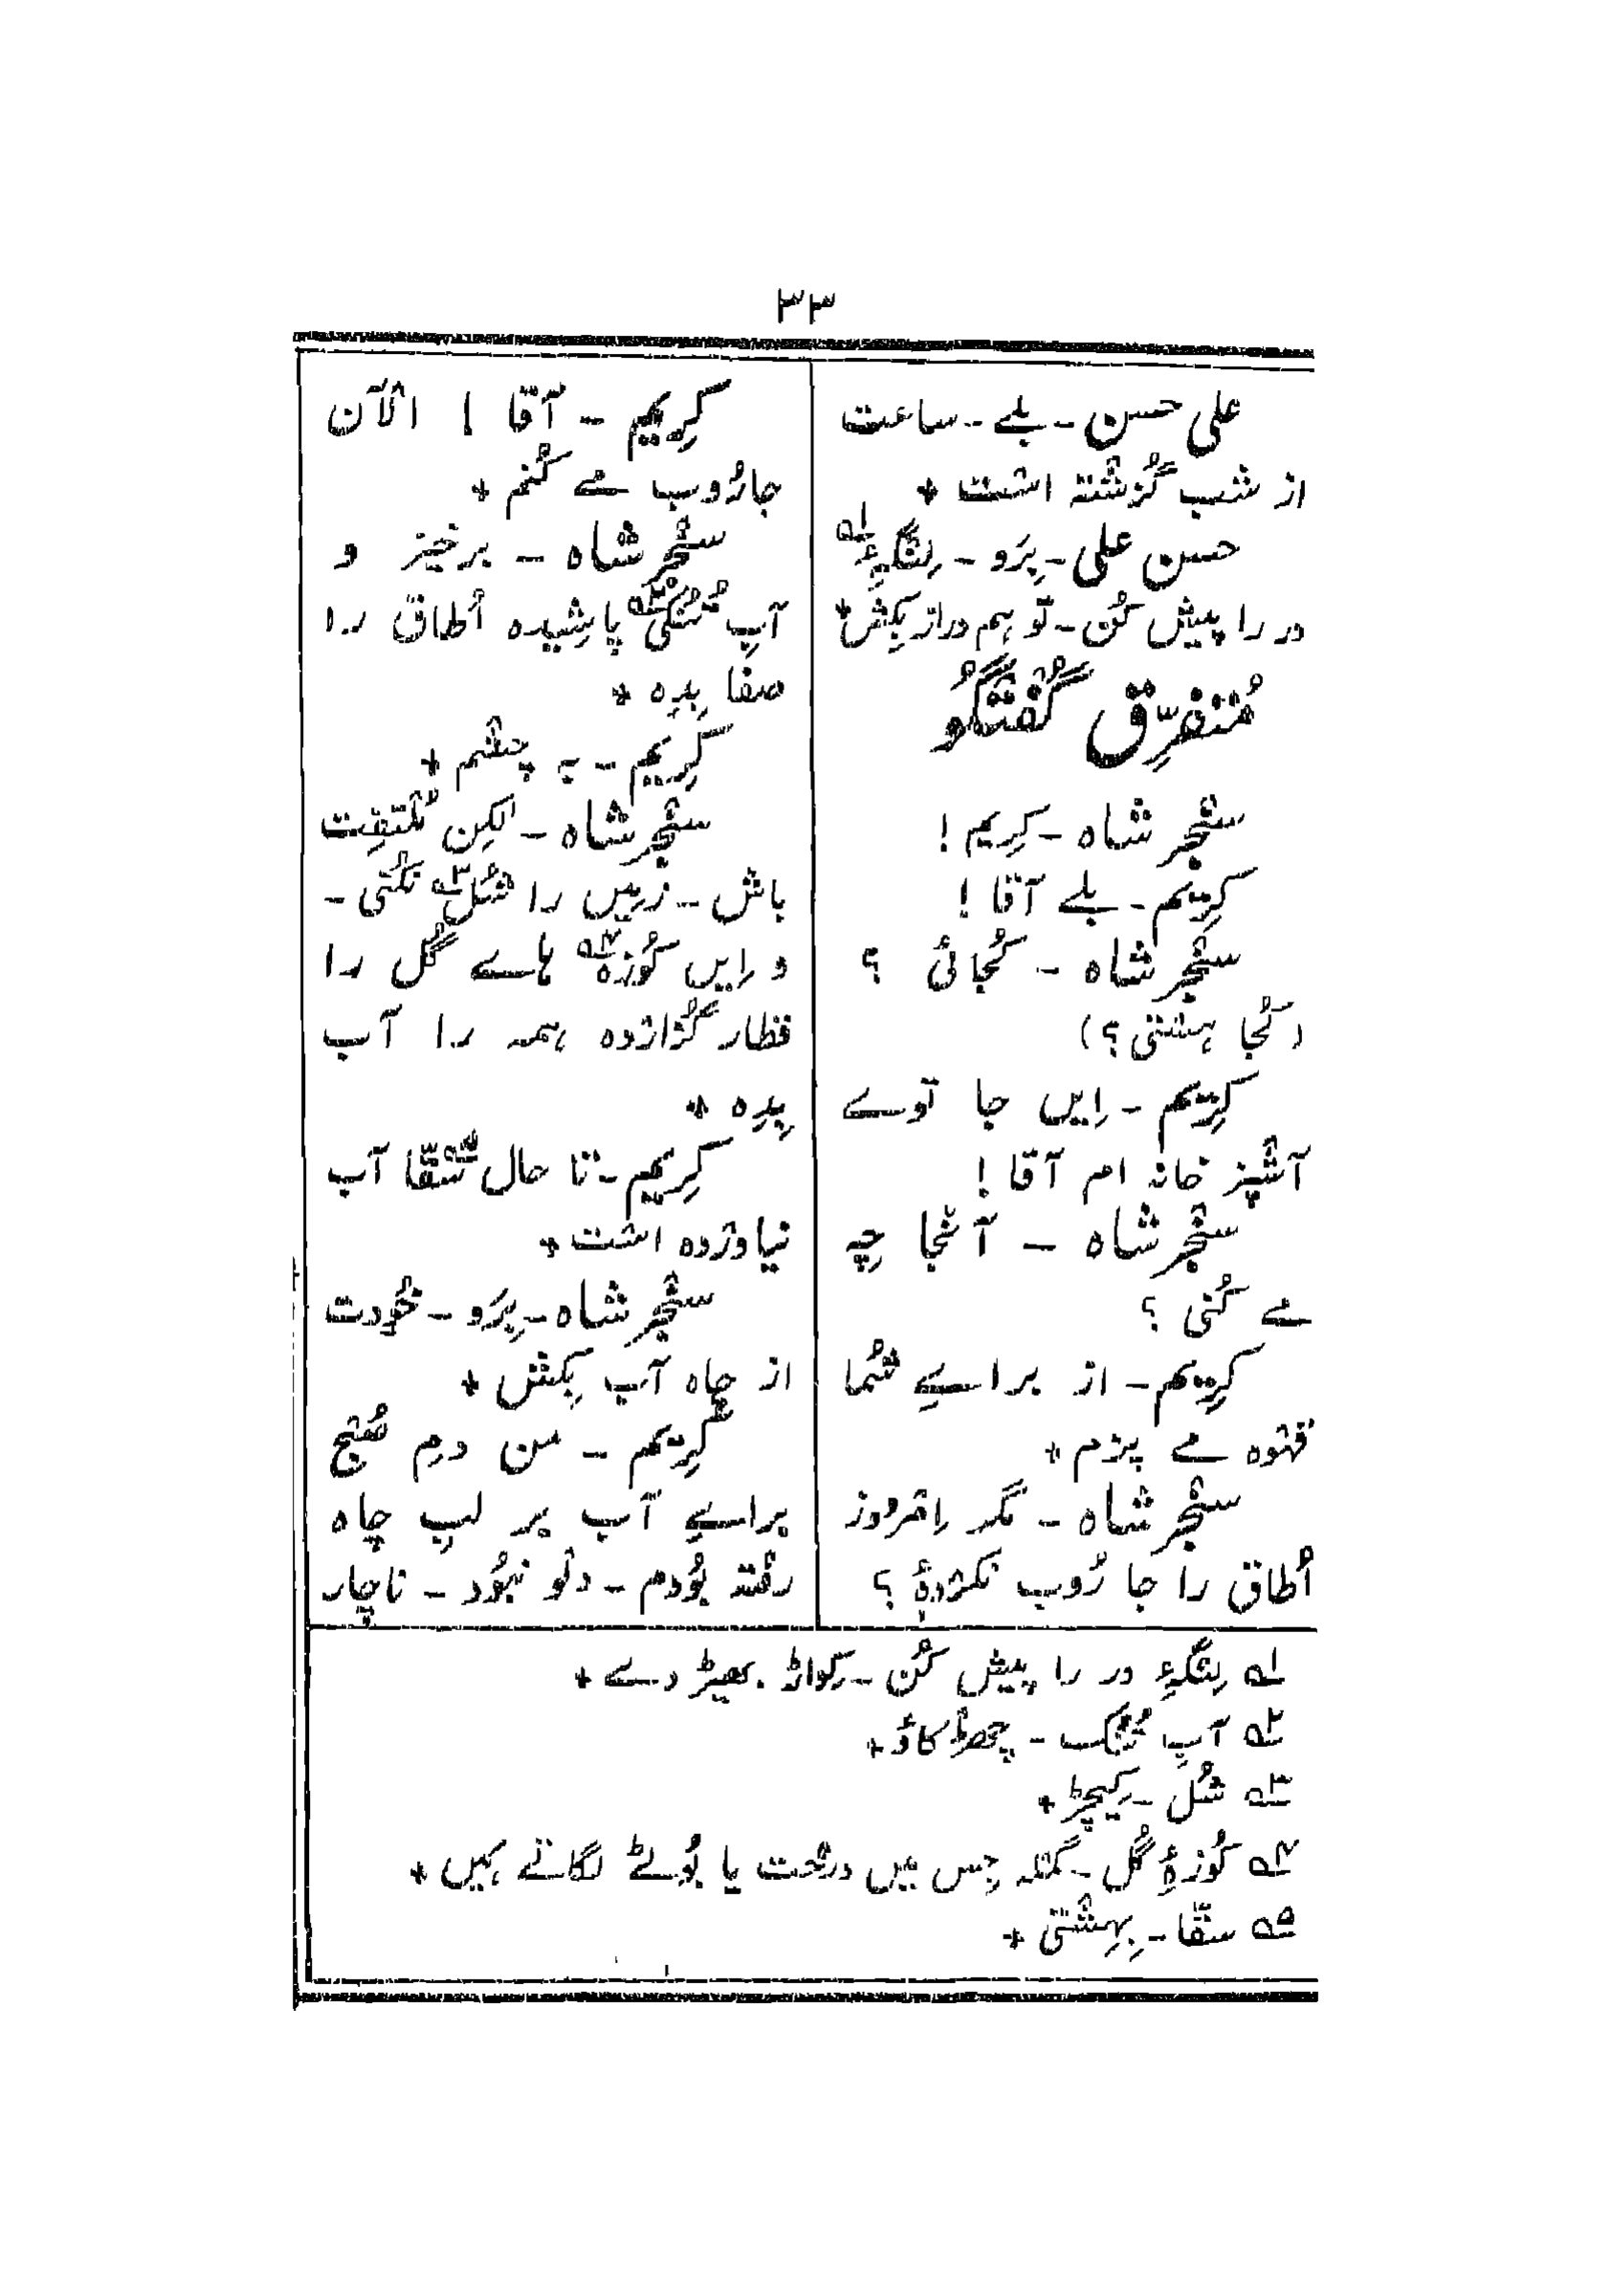 ۳۳
علی حسن ۔ بلے ۔ ساعت
از شب گُزشتہ است +
حسن علی ۔ بِرَو ۔ لِنگۂِ ۱؎
در را پیش کُن ۔ تو ہم دراز بِکش +
مُتفرِّق گُفتگُو
سنجر شاہ ۔ کریم !
کریم ۔ بلے آقا !
سنجر شاہ ۔ کُجائی ؟
(کُجا ہستی ؟)
کریم ۔ اِیں جا توے
آشپز خانہ ام آقا !
سنجر شاہ ۔ آنجا چِہ
مے کُنی ؟
کریم ۔ از براےِ شُما
قہوہ مے پزم +
سنجر شاہ ۔ مگر اِمروز
اُطاق را جا رُوب نکردۂ ؟
کریم ۔ آقا ! الآن
جارُوب مے کُنم +
سنجر شاہ ۔ برخیز و
آبِ تُنکی ۲؎ پاشیدہ اُطاق را
صفا بِدِہ +
کریم ۔ بہ چشم +
سنجر شاہ ۔ لٰکِن مُلتفِت
باش ۔ زمیں را شُل ۳؎ نکُنی ۔
و اِیں کُوزہ ۴؎ ہاے گُل را
قطار گُزاردہ ہمہ را آب
بِدِہ +
کریم ۔ تا حال سقّا ۵؎ آب
نیاوردہ است +
سنجر شاہ ۔ بِرَو ۔ خودت
از چاہ آب بِکش +
کریم ۔ من دمِ صُبح
براےِ آب بر لبِ چاہ
رفتہ بُودم ۔ دلو نبُود ۔ ناچار
۱؎ لِنگۂِ در را پیش کُن ۔ کِواڑ بھیڑ دے +
۲؎ آبِ تُنک ۔ چھڑکاؤ +
۳؎ شُل ۔ کیچڑ +
۴؎ کُوزۂِ گُل ۔ گملہ جِس میں درخت یا بُوٹے لگاتے ہیں +
۵؎ سقّا ۔ بِہِشتی +